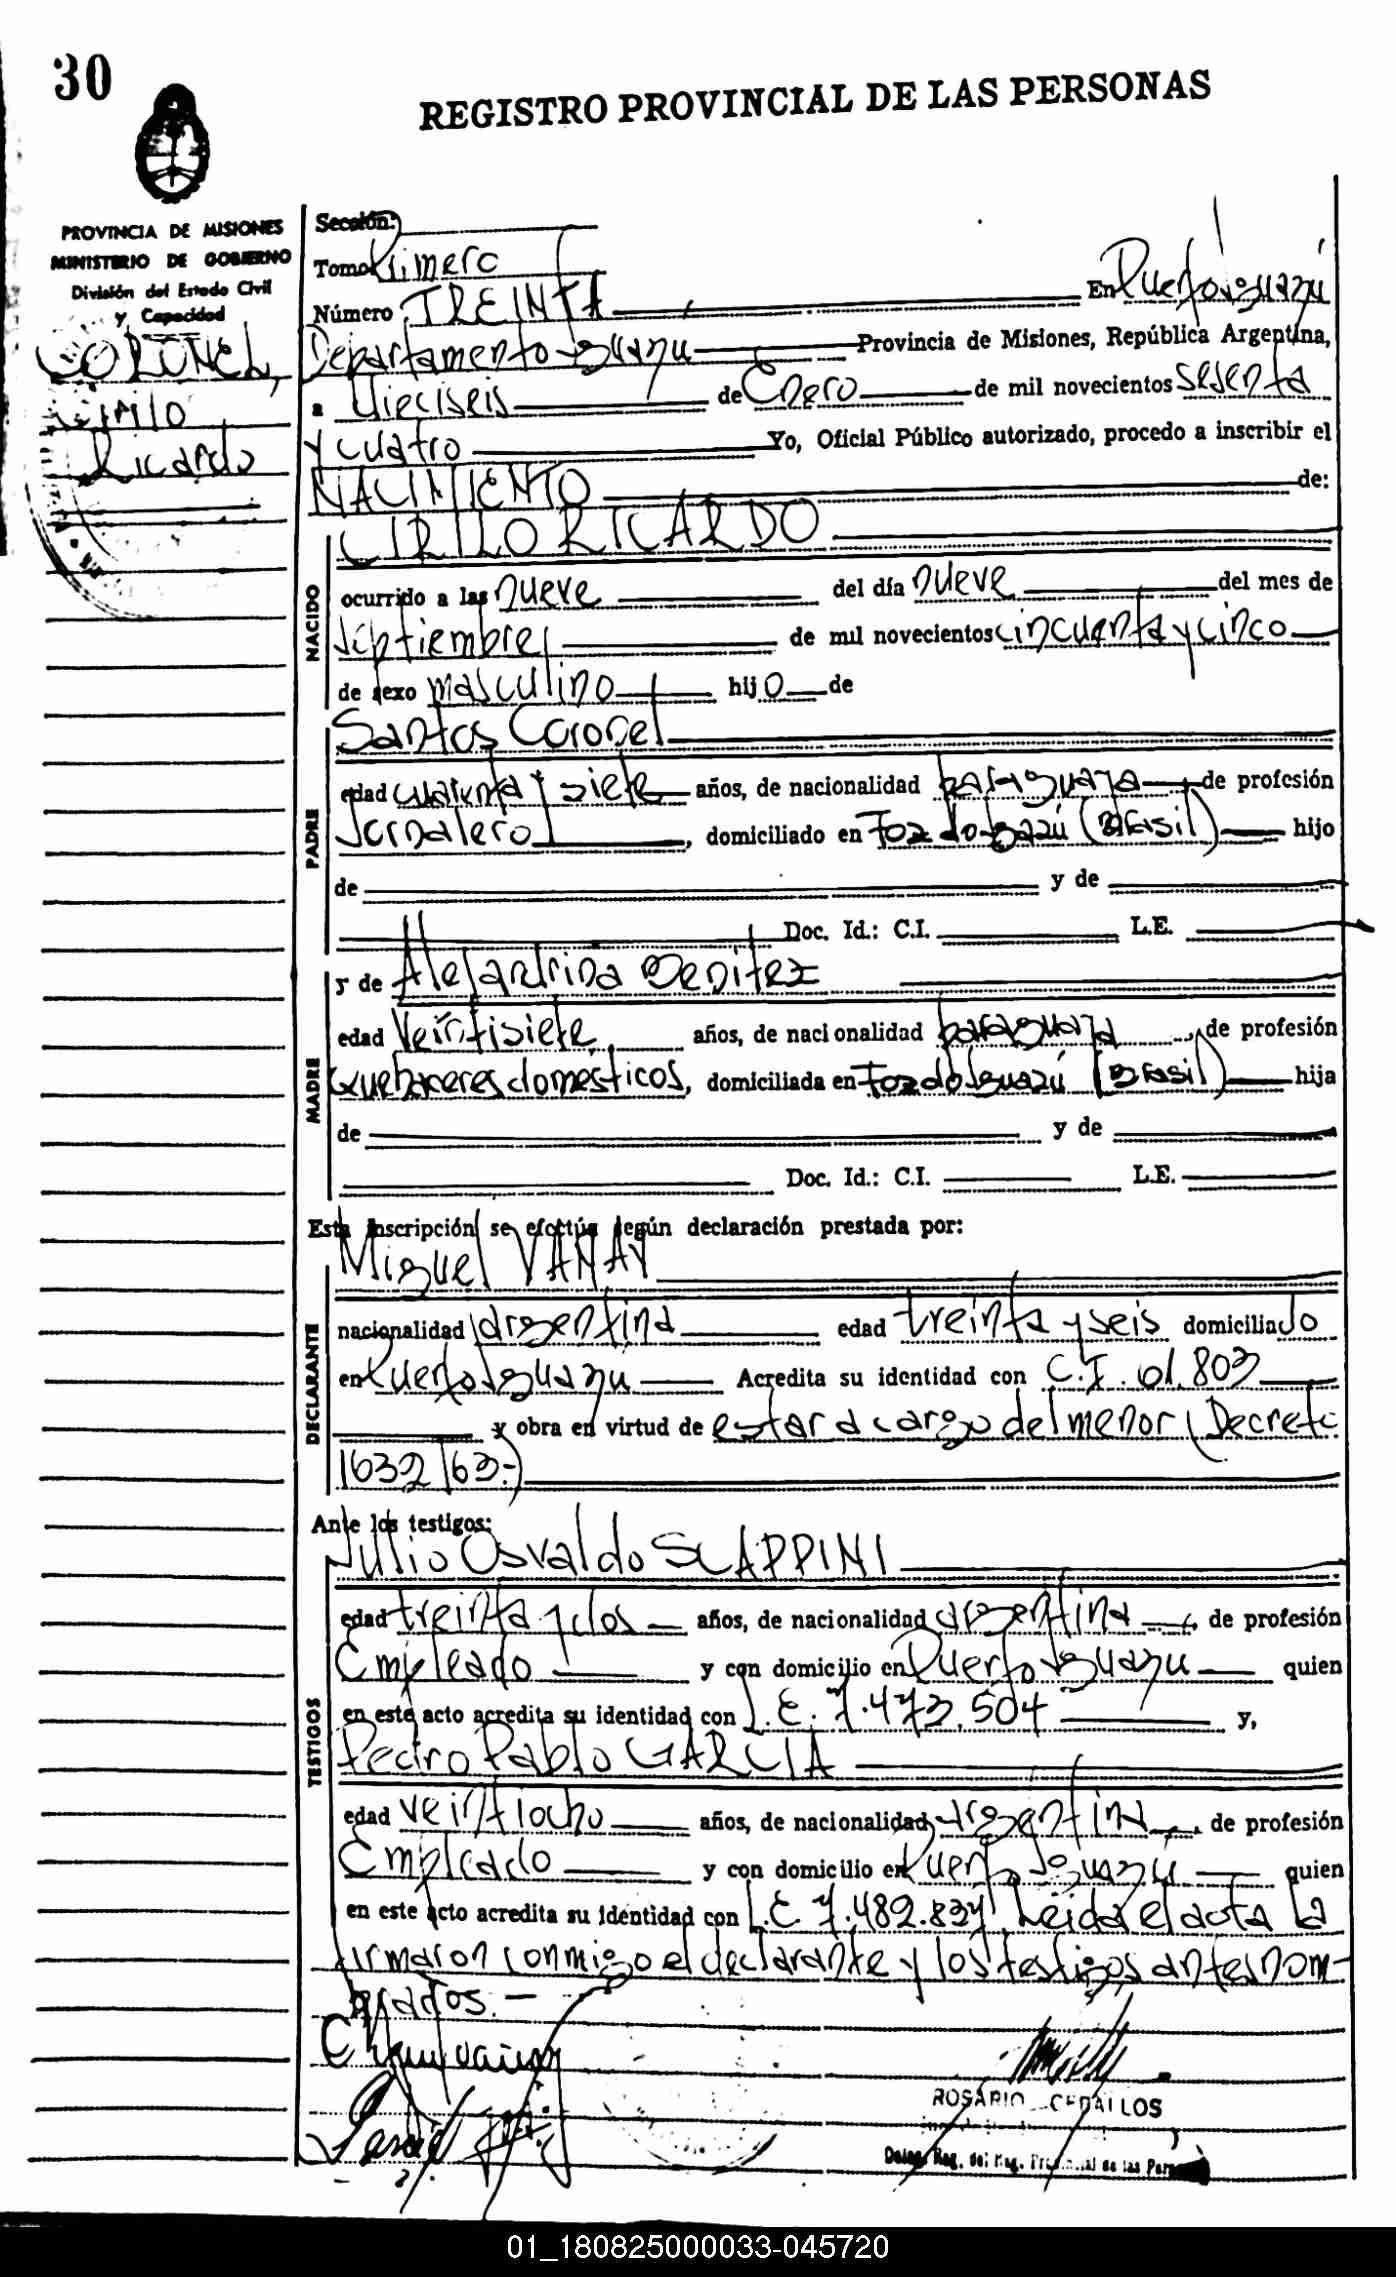 30
REGISTRO PROVINCIAL DE LAS PERSONAS
PROVINCIA DE MISIONES
MINISTERIO DE GOBIERNO
División del Estado Civil
y Capacidad
CORONEL,
Cirilo
Ricardo
Sección:
Tomo Primero
Número TREINTA En Puerto Iguazú
Departamento Iguazu Provincia de Misiones, República Argentina,
a Dieciseis de Enero de mil novecientos sesenta
y cuatro Yo, Oficial Público autorizado, procedo a inscribir el
NACIMIENTO de:
CIRILO RICARDO
NACIDO
ocurrido a las nueve del día nueve del mes de
Septiembre de mil novecientos cincuenta y cinco
de sexo masculino hijo de
Santos Coronel
PADRE
edad cuarenta y siete años, de nacionalidad paraguaya de profesión
Jornalero, domiciliado en Foz do Iguazú (Brasil) hijo
de y de
Doc. Id.: C.I. L.E.
MADRE
y de Alejandrina Benitez
edad veintisiete años, de nacionalidad paraguaya, de profesión
Quehaceres domésticos, domiciliada en Foz do Iguazú (Brasil) hija
de y de
Doc. Id.: C.I. L.E.
Esta inscripción se efectúa según declaración prestada por:
Miguel VANAY
DECLARANTE
nacionalidad argentina edad treinta y seis domiciliado
en Puerto Iguazu Acredita su identidad con C.I. 61.803
y obra en virtud de estar a cargo del menor (Decreto
1632/63.-)
Ante los testigos:
Julio Osvaldo SCAPPINI
TESTIGOS
edad treinta y dos años, de nacionalidad argentina, de profesión
Empleado y con domicilio en Puerto Iguazu quien
en este acto acredita su identidad con L.E. 7.473.504 y,
Pedro Pablo GARCIA
edad veintiocho años, de nacionalidad argentina, de profesión
Empleado y con domicilio en Puerto Iguazú quien
en este acto acredita su identidad con L.E. 7.489.834 Leida el acta la
firmaron conmigo el declarante y los testigos antes nom-
brados.-
ROSARIO CEBALLOS
Deleg. Reg. del Reg. Provincial de las Pers
01_180825000033-045720